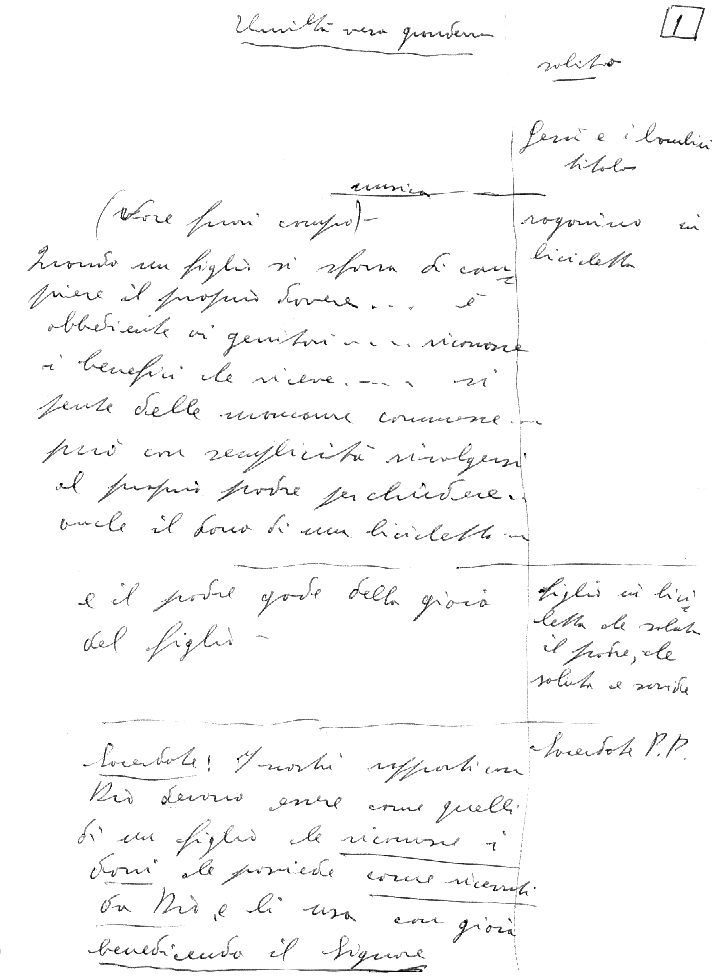 Umiltà vera grandezza
1
solito
Gesù e i bambini
titolo
musica
(Voce fuori campo) -
ragazzino in
bicicletta
Quando un figlio si sforza di com-
piere il proprio dovere.... è
obbediente ai genitori.... riconosce
i benefici che riceve.... si
pente delle mancanze commesse...
può con semplicità rivolgersi
al proprio padre per chiedere..
anche il dono di una bicicletta...
e il padre gode della gioia
del figlio -
figlio in bici-
cletta che saluta
il padre, che
saluta e sorride
Sacerdote P.P.
Sacerdote: I nostri rapporti con
Dio devono essere come quelli
di un figlio che riconosce i
doni che possiede come ricevuti
da Dio, e li usa con gioia
benedicendo il Signore